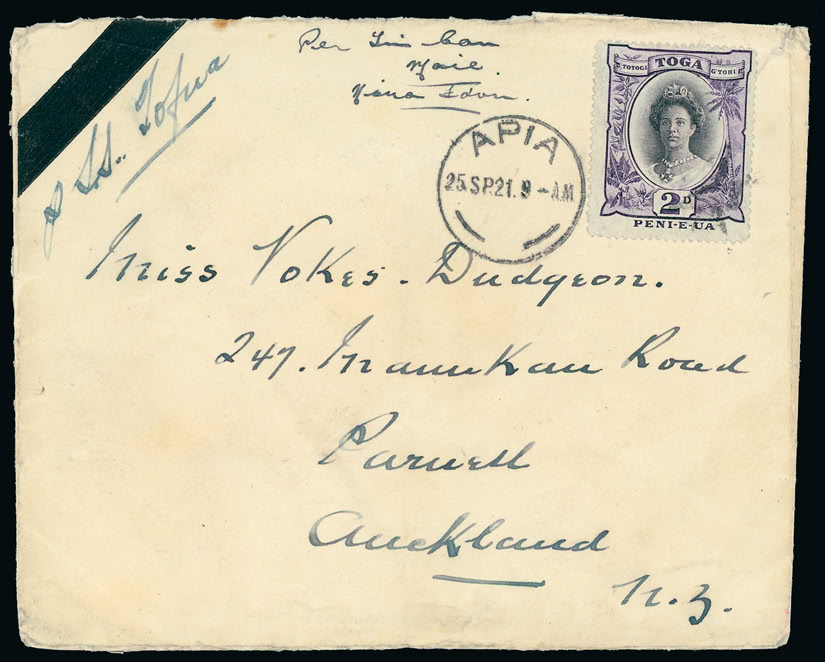 Per Tin Can
Mail.
Niua Foou.
p S.S. Tofua
TOTOGI TOGA G'TOHI
2D
PENI-E-UA
APIA
25.SP.21.9-AM
Miss Vokes-Dudgeon.
247. Manukau Road
Parnell
Auckland
N.Z.